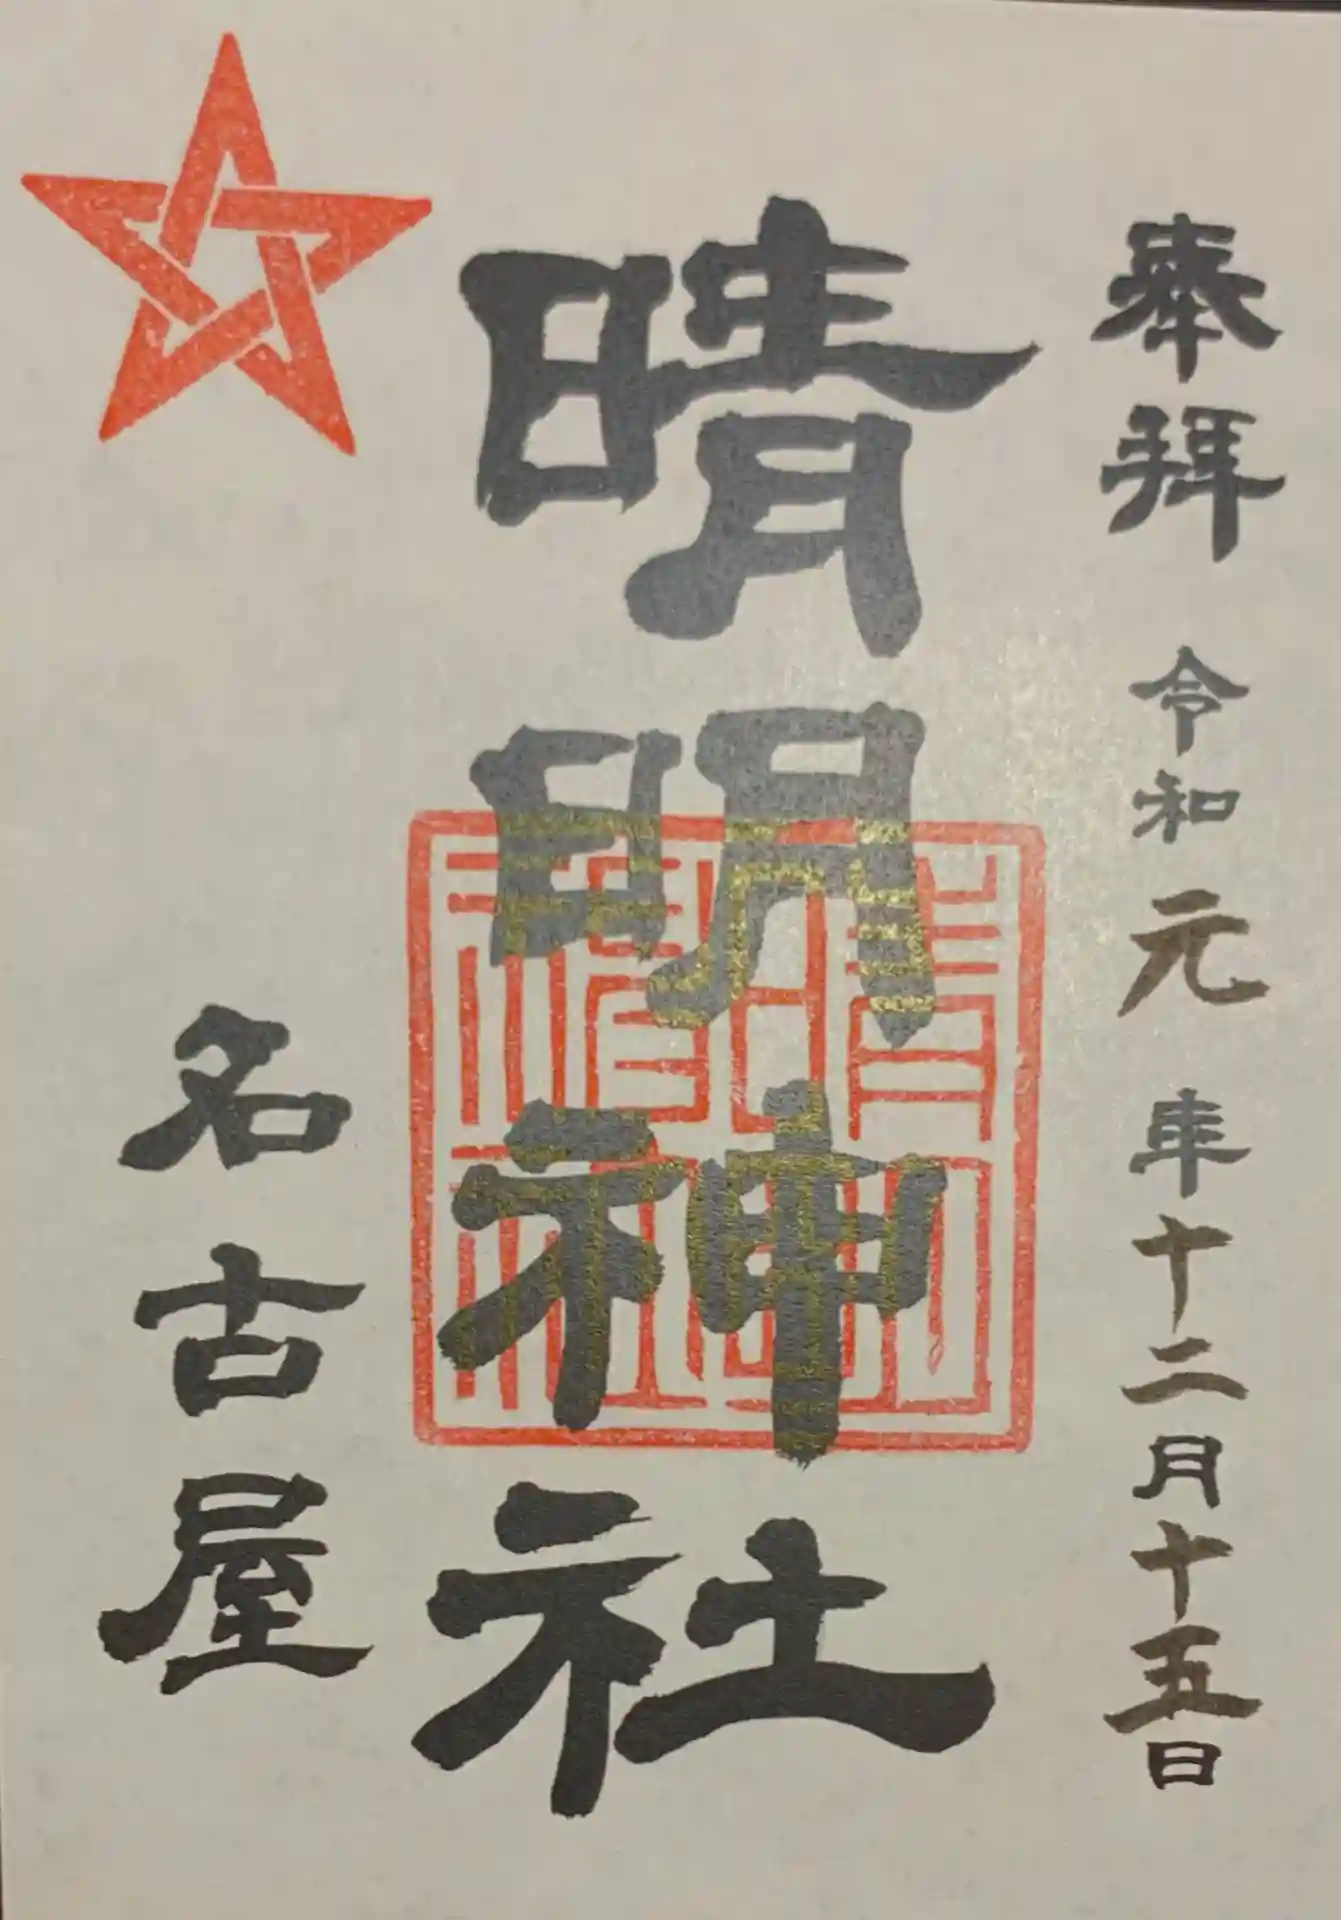 奉拝 令和元年十二月十五日
晴明神社
名古屋
晴明
神社